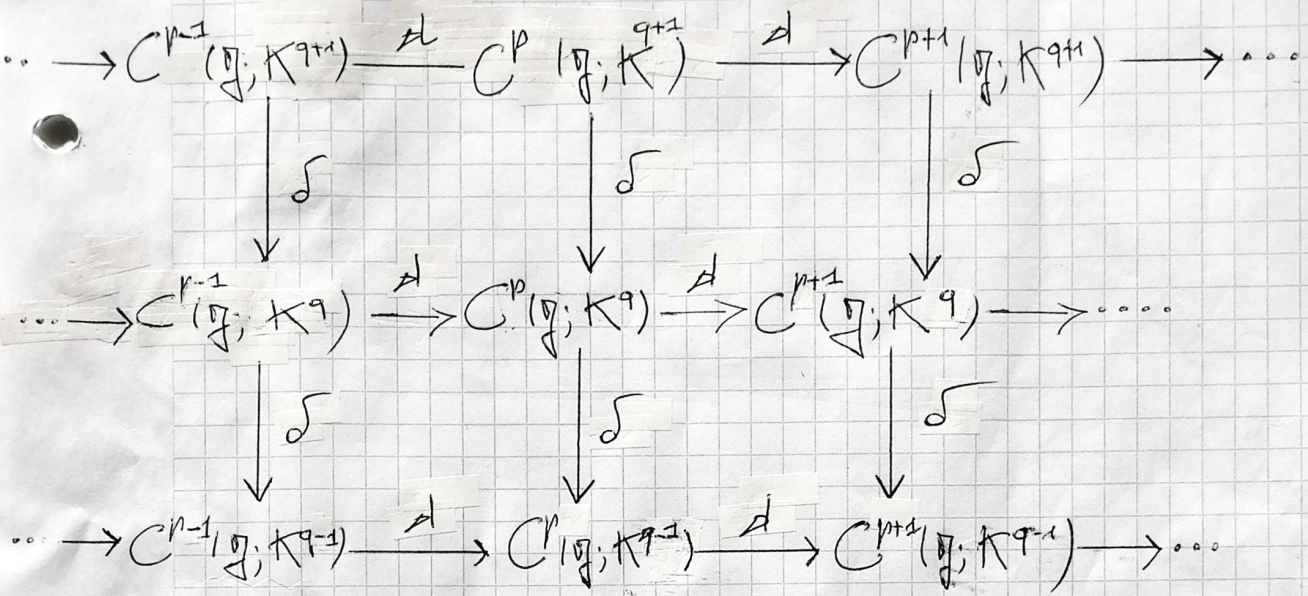 .. → C^{p-1}(𝔤; K^{q+1}) —d— C^p(𝔤; K^{q+1}) —d→ C^{p+1}(𝔤; K^{q+1}) → ...
↓ δ ↓ δ ↓ δ
... → C^{p-1}(𝔤; K^q) —d→ C^p(𝔤; K^q) —d→ C^{p+1}(𝔤; K^q) → ....
↓ δ ↓ δ ↓ δ
... → C^{p-1}(𝔤; K^{q-1}) —d→ C^p(𝔤; K^{q-1}) —d→ C^{p+1}(𝔤; K^{q-1}) → ...